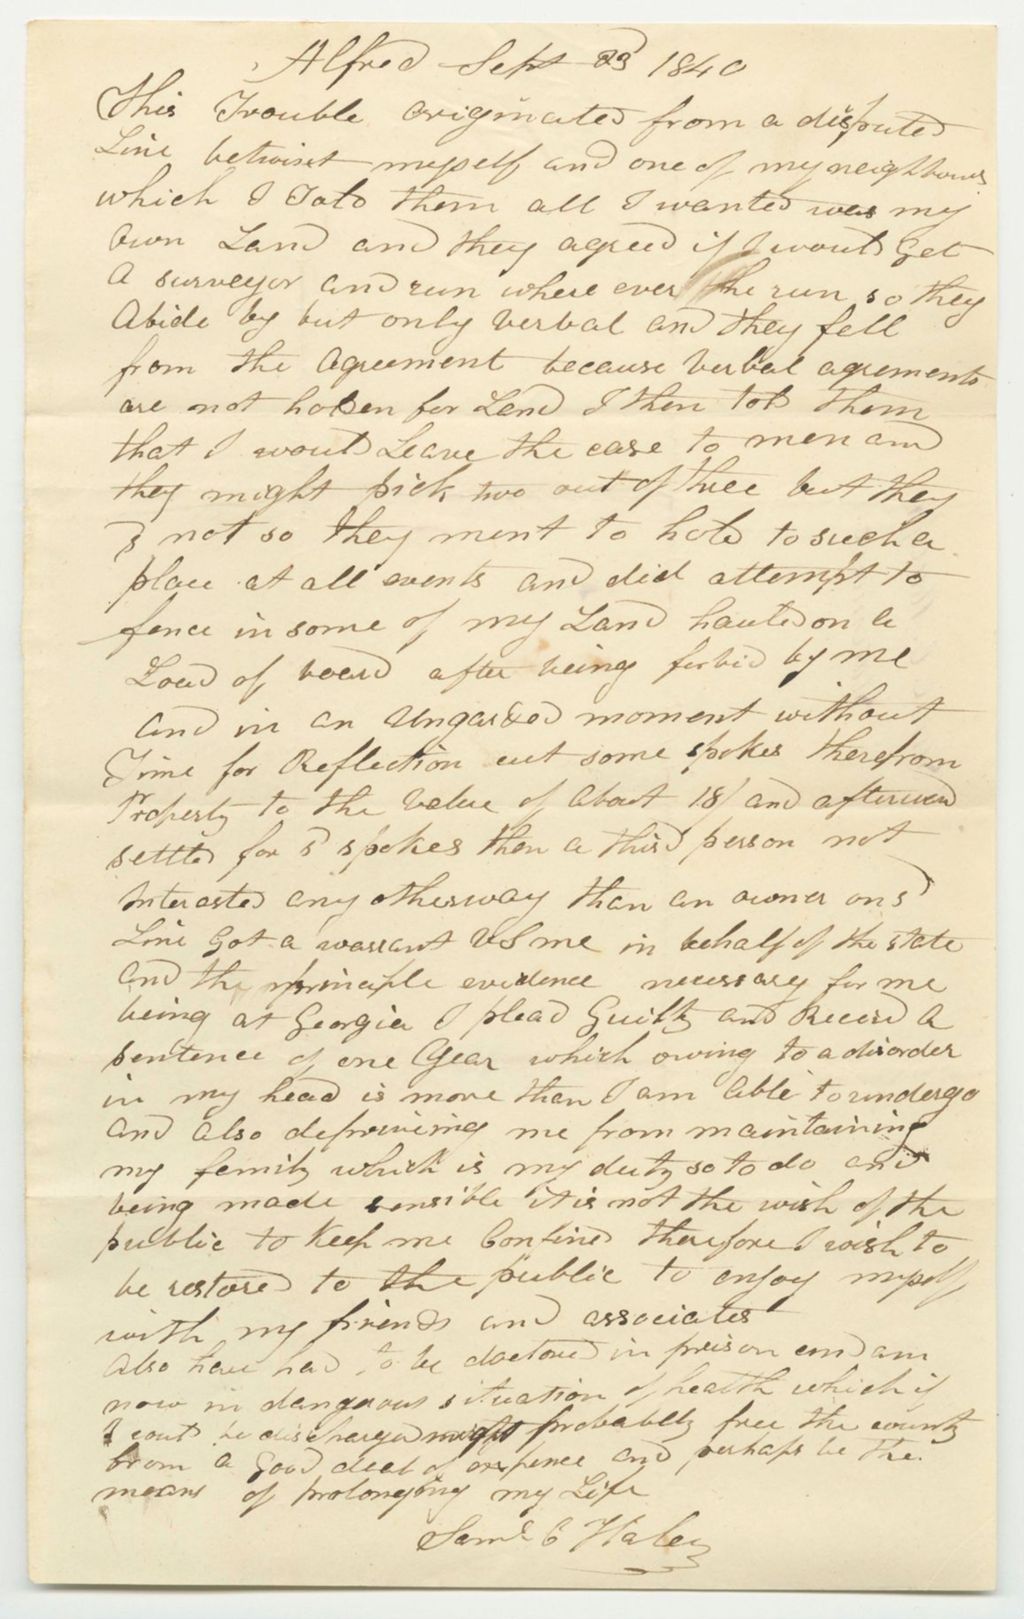 Alfred Sept 23 1840
This Trouble originated from a disputed
Line betwixt myself and one of my neighbours
which I Told them all I wanted was my
own Land and they agreed if I would Get
A surveyor and run where ever the run so they
Abide by but only verbal and they fell
from the Agreement because verbal agrements
are not holden for Land I then told them
that I would Leave the case to men and
they might pick two out of three but they
not so they ment to hold to such a
place at all events and did attempt to
fence in some of my Land hauled on a
Load of board after being forbid by me
And in an Ungarded moment without
Time for Reflection cut some spokes therefrom
Property to the value of About 18/ and afterward
settld for 5 spokes then a third person not
Interested any otherway than an owner on sd
Line Got a warrant VS me in behalf of the state
and the principle evidence necessary for me
being at Georgia I plead Guilty and Recied A
Sentence of one Year which owing to a disorder
in my head is more than I am Able to undergo
and also depriveing me from maintaining
my family which is my duty so to do and
being made sensible it is not the wish of the
public to Keep me Confined therefore I wish to
be restored to the public to enjoy myself
with my friends and associates
Also have had to be doctored in preison and am
now in dangerous situation of health which if
I coud be discharged might probably free the county
from a Good deal of expence and perhaps be the
means of prolonging my Life
Saml C Haley